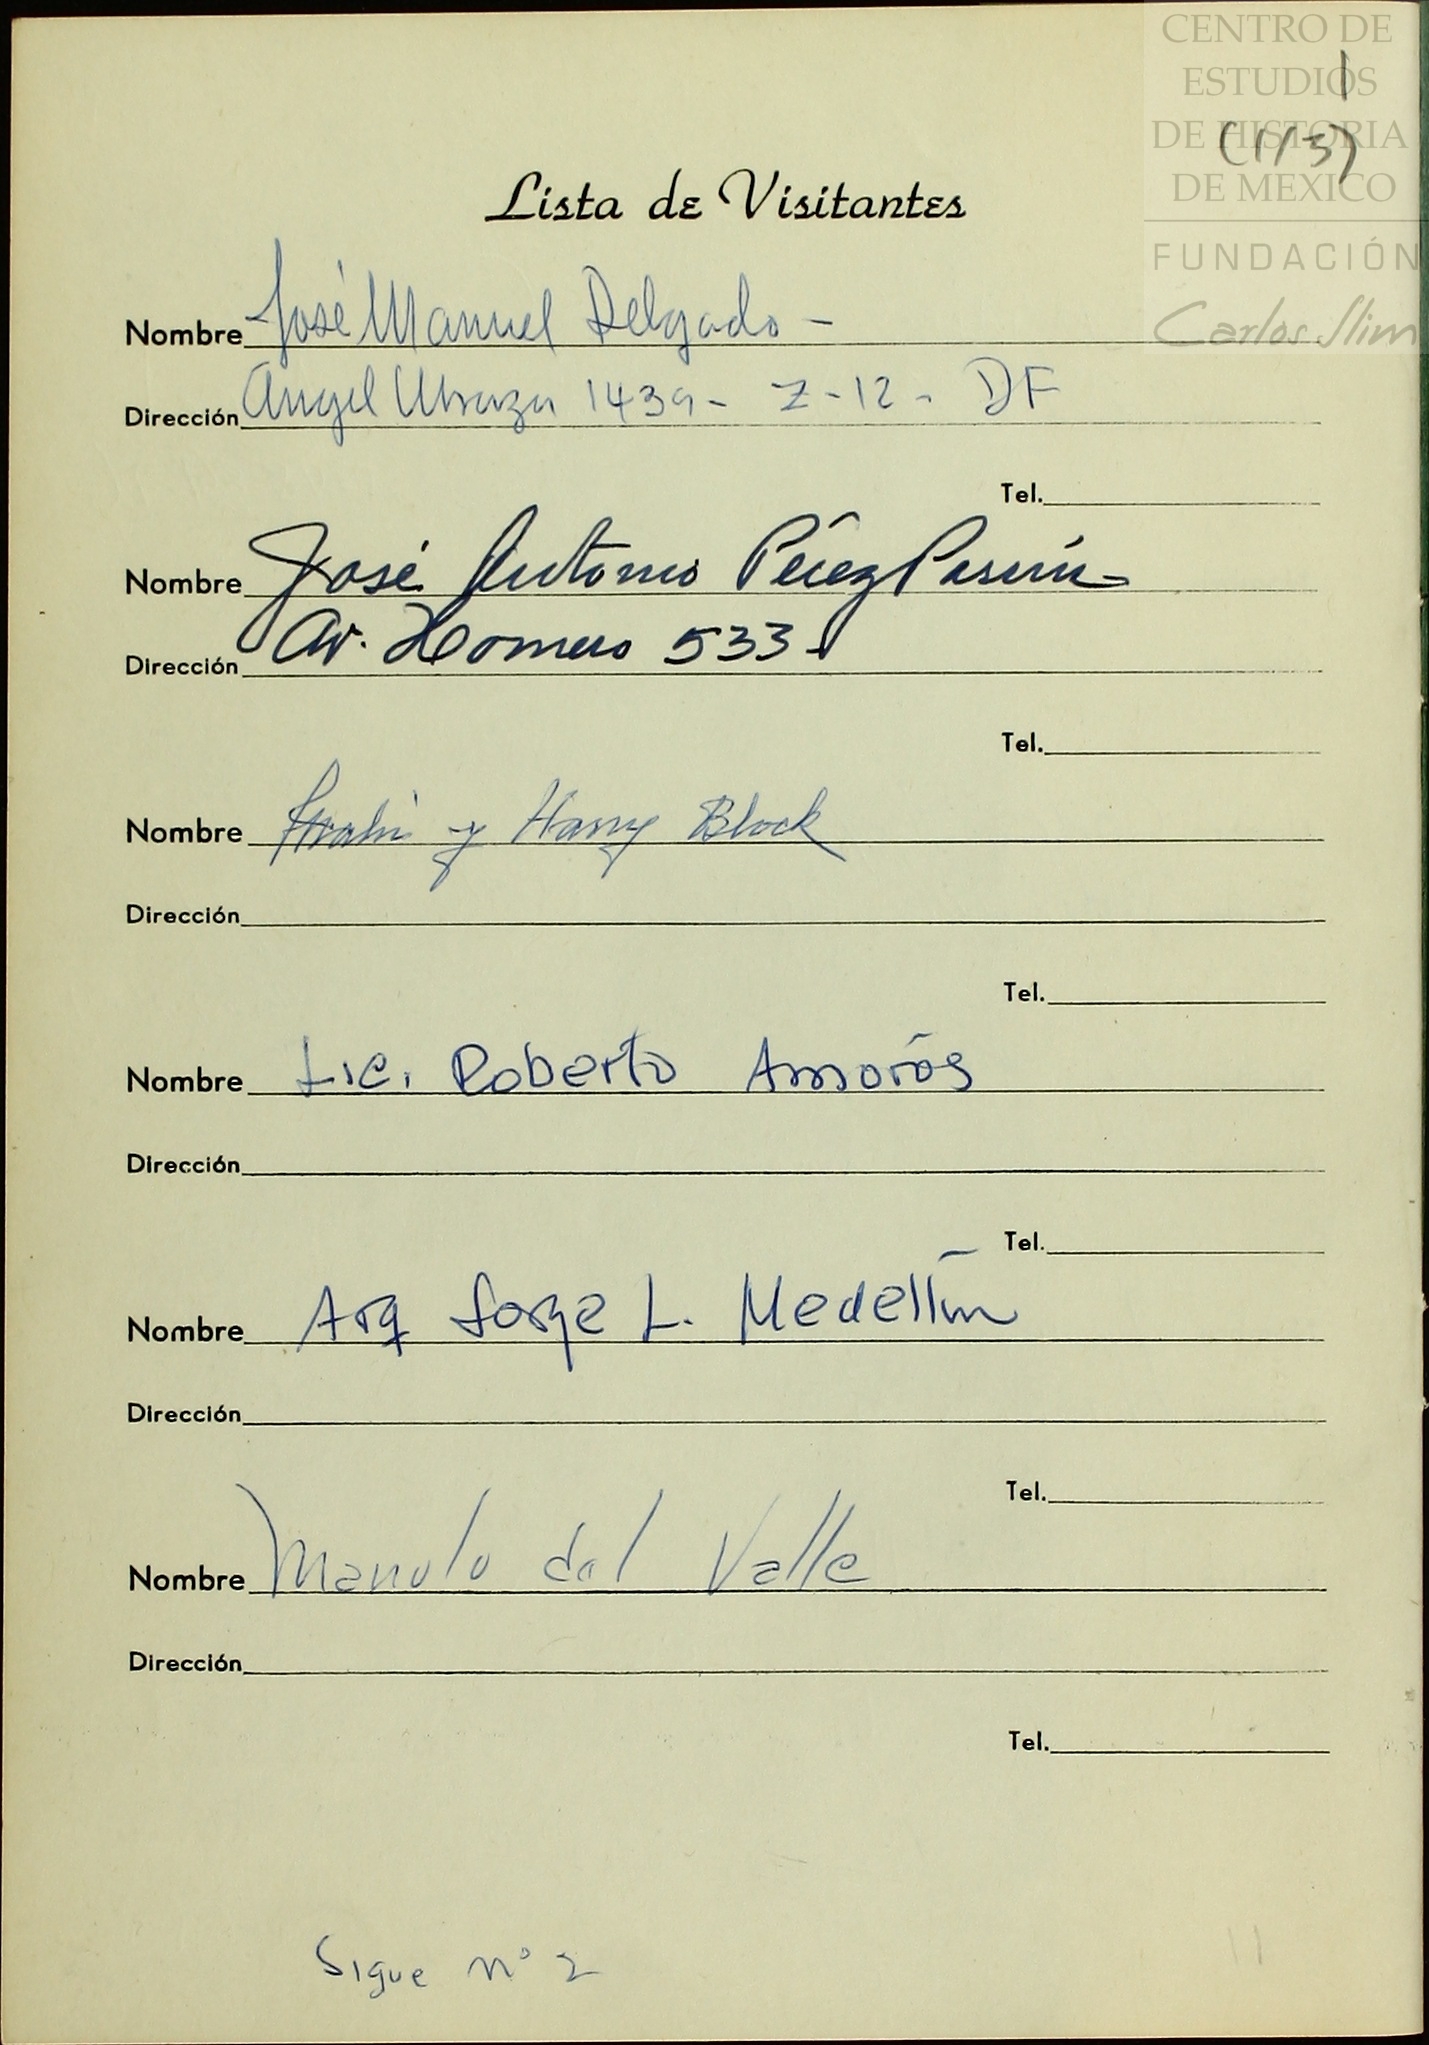 CENTRO DE
ESTUDIOS
DE HISTORIA
DE MEXICO
FUNDACIÓN
Carlos Slim
1
(1/3)
Lista de Visitantes
Nombre José Manuel Delgado -
Dirección Angel Urraza 1439 - Z-12 - DF
Tel.
Nombre José Antonio Pérez
Dirección Av. Homero 533
Tel.
Nombre y Harry Block
Dirección
Tel.
Nombre Lic. Roberto Amorós
Dirección
Tel.
Nombre Arq Jorge L. Medellín
Dirección
Tel.
Nombre Manolo del Valle
Dirección
Tel.
Sigue nº 2
11